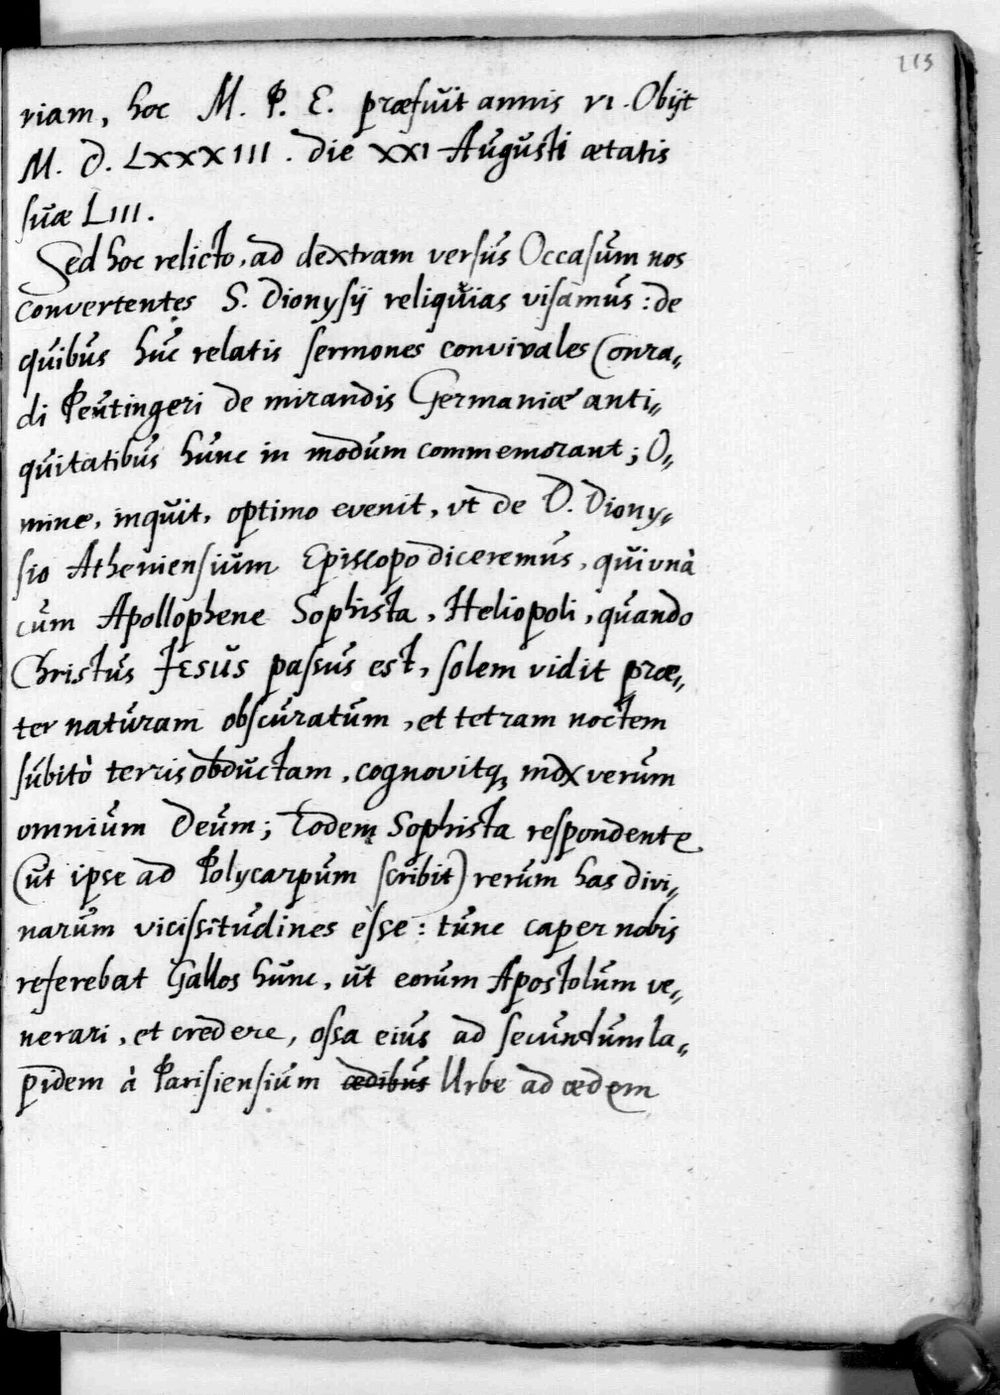 113
riam, hoc M. P. E. præfuit annis VI. Obijt
M. D. LXXXIII. die XXI Augusti ætatis
suæ LIII.
Sed hoc relicto, ad dextram versus Occasum nos
convertentes S. Dionysij reliquias visamus: de
quibus huc relatis sermones convivales Conra„
di Peutingeri de mirandis Germaniæ anti„
quitatibus hunc in modum commemorant; O„
mine, inquit, optimo evenit, vt de D. Diony„
sio Atheniensium Episcopo diceremus, qui vnà
cum Apollophene Sophista, Heliopoli, quando
Christus Jesus passus est, solem vidit præ„
ter naturam obscuratum, et tetram noctem
subitò terris obductam, cognovitq, mox verum
omnium Deum; Eodem Sophista respondente
(ut ipse ad Polycarpum scribit) rerum has divi„
narum vicissitudines esse: tunc caper nobis
referebat Gallos hunc, ut eorum Apostolum ve„
nerari, et credere, ossa eius ad secundum la„
pidem à Parisiensium ædibus Urbe ad ædem